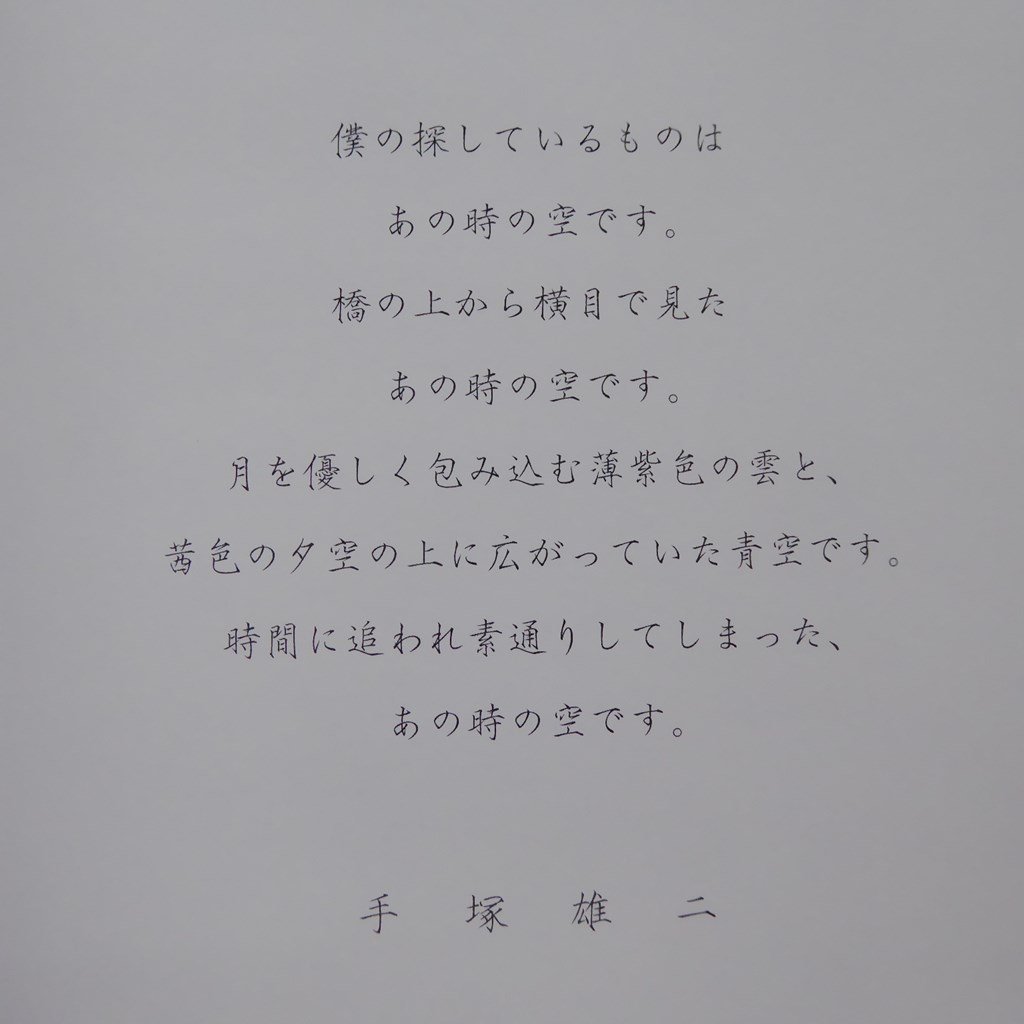 僕の探しているものは
あの時の空です。
橋の上から横目で見た
あの時の空です。
月を優しく包み込む薄紫色の雲と、
茜色の夕空の上に広がっていた青空です。
時間に追われ素通りしてしまった、
あの時の空です。
手塚雄二